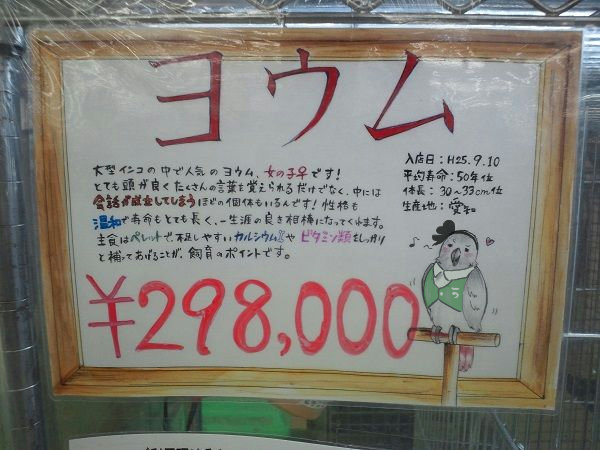 ヨウム
大型インコの中で人気のヨウム、女の子♀です!
とても頭が良くたくさんの言葉を覚えられるだけでなく、中には
会話が成立してしまうほどの個体もいるんです!性格も
温和で寿命もとても長く、一生涯の良き相棒になってくれます。
主食はペレットで不足しやすいカルシウムやビタミン類をしっかり
と補ってあげることが、飼育のポイントです。
入店日:H25.9.10
平均寿命:50年位
体長:30~33cm位
生産地:愛知
¥298,000